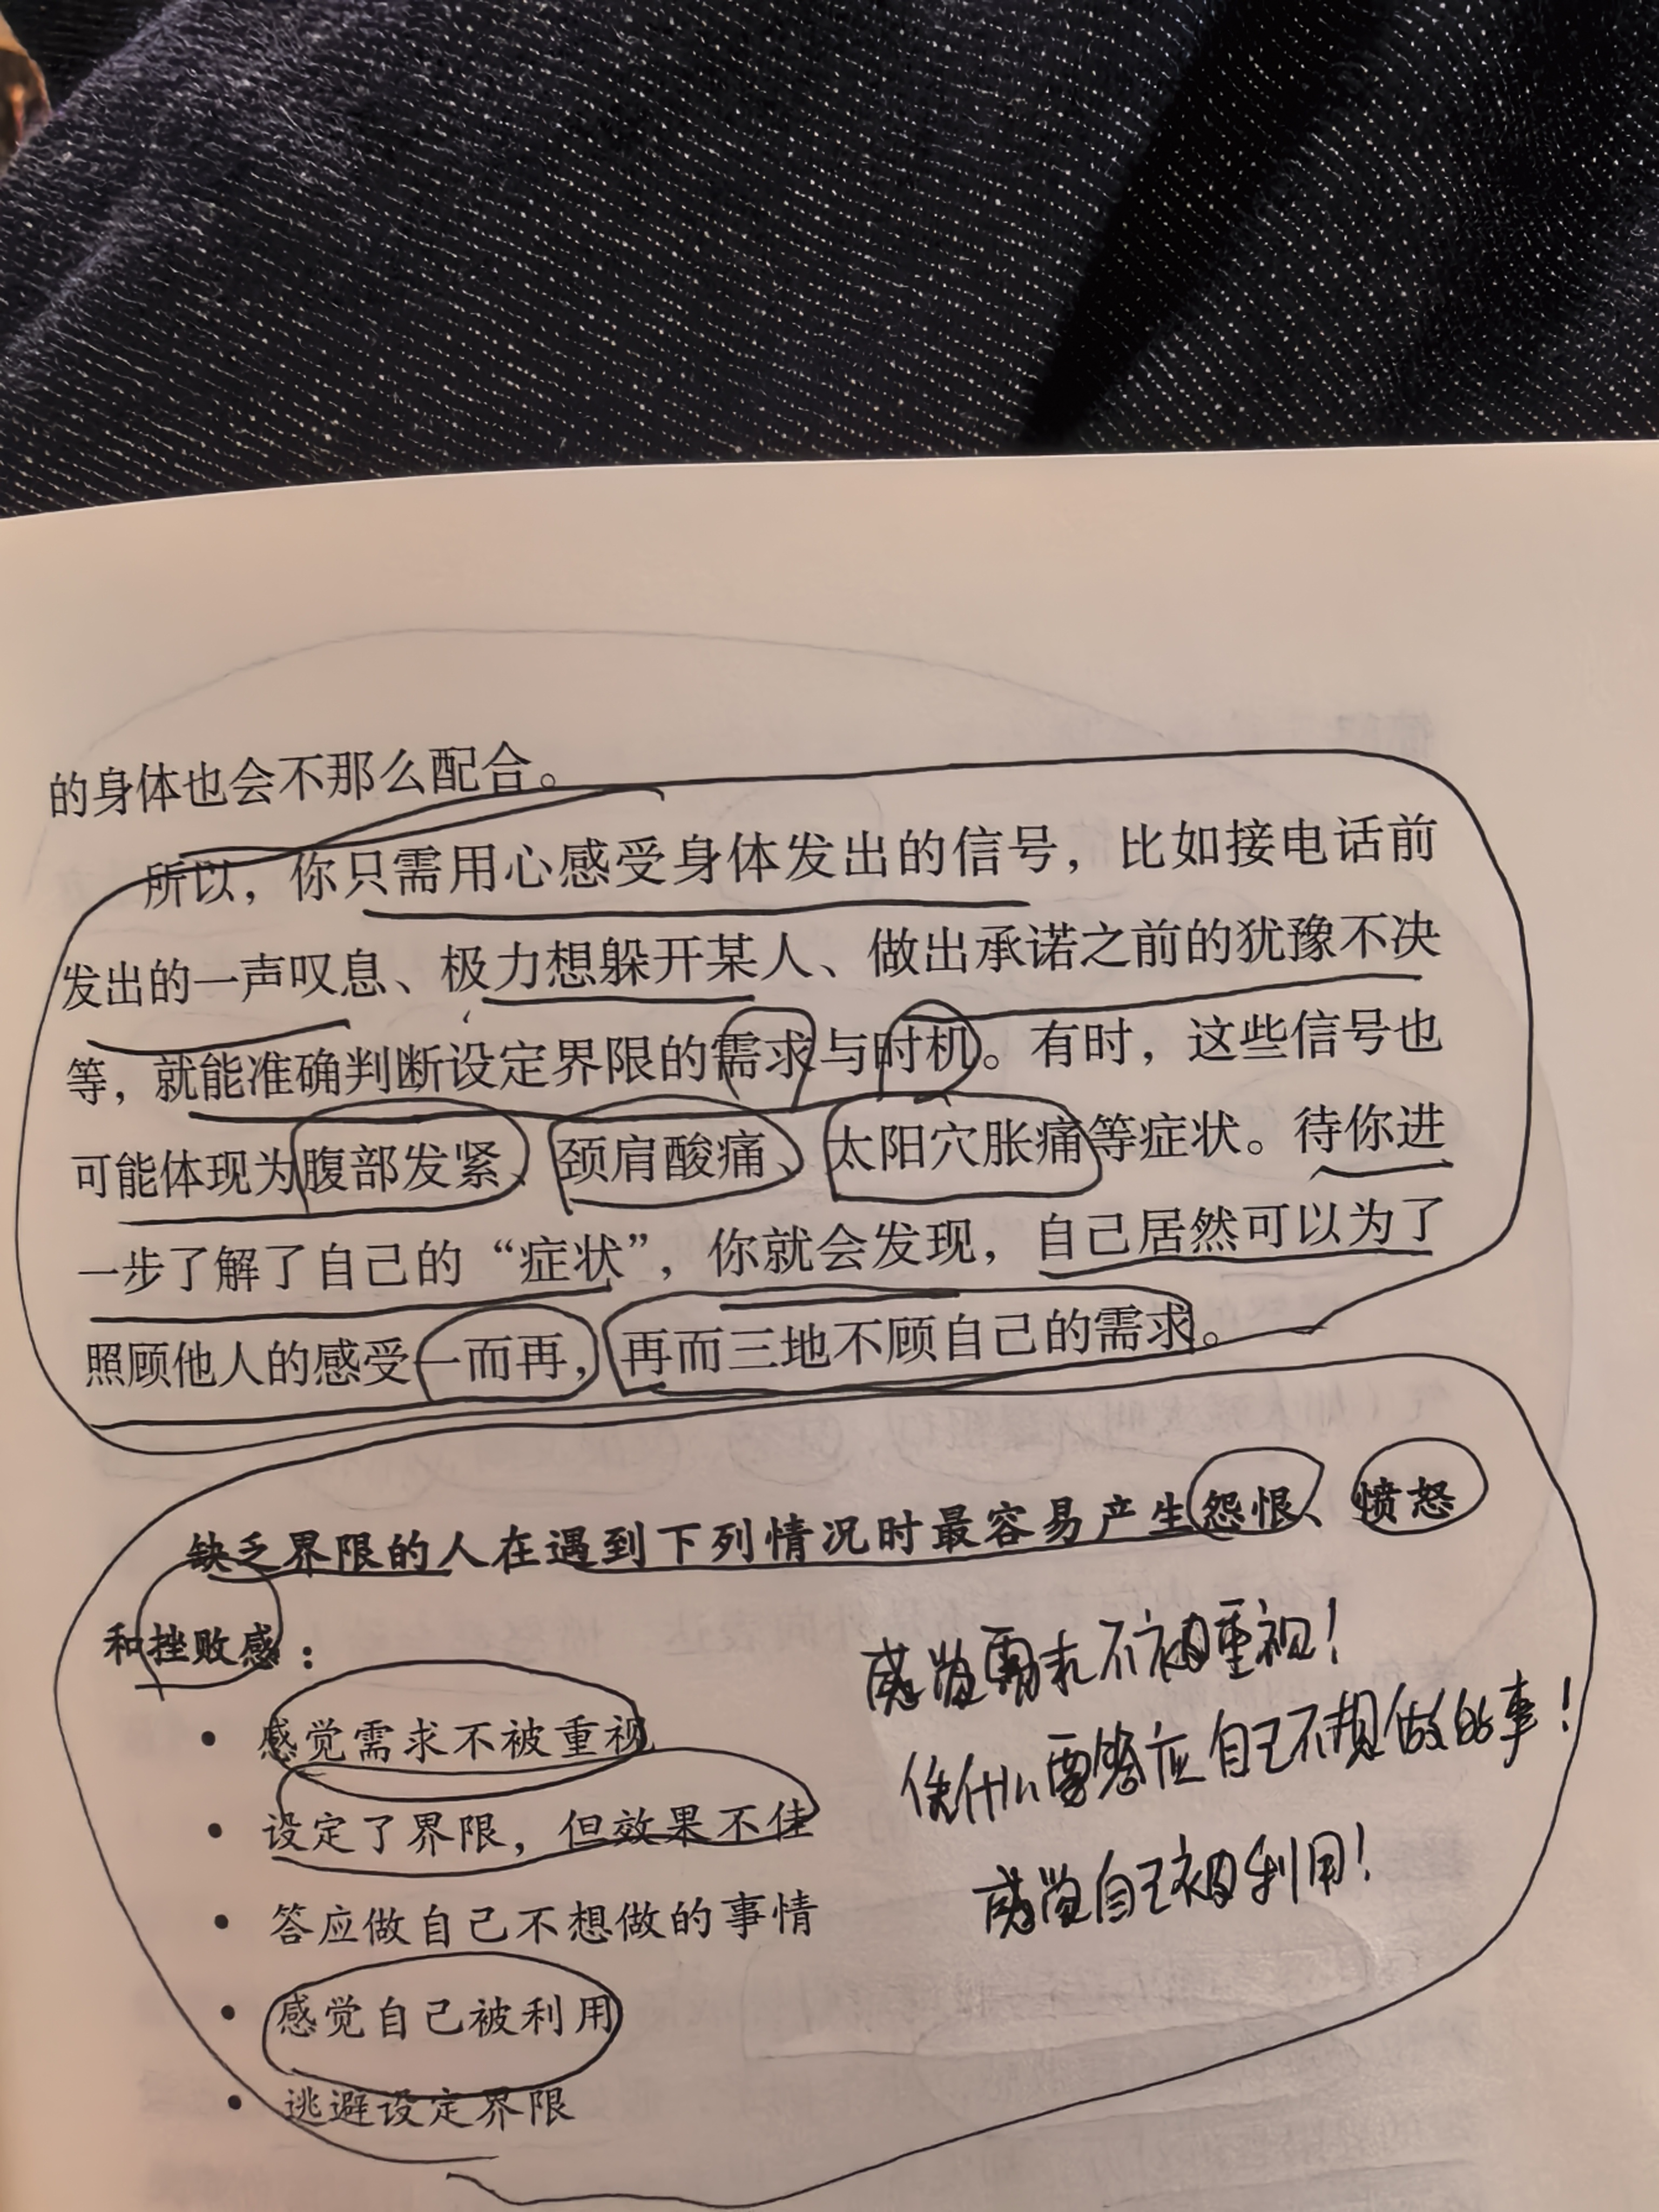 的身体也会不那么配合。
所以，你只需用心感受身体发出的信号，比如接电话前
发出的一声叹息、极力想躲开某人、做出承诺之前的犹豫不决
等，就能准确判断设定界限的需求与时机。有时，这些信号也
可能体现为腹部发紧、颈肩酸痛、太阳穴胀痛等症状。待你进
一步了解了自己的“症状”，你就会发现，自己居然可以为了
照顾他人的感受一而再，再而三地不顾自己的需求。
缺乏界限的人在遇到下列情况时最容易产生怨恨、愤怒
和挫败感：
感觉需求不被重视！
• 感觉需求不被重视
凭什么要答应自己不想做的事！
• 设定了界限，但效果不佳
感觉自己被利用！
• 答应做自己不想做的事情
• 感觉自己被利用
• 逃避设定界限